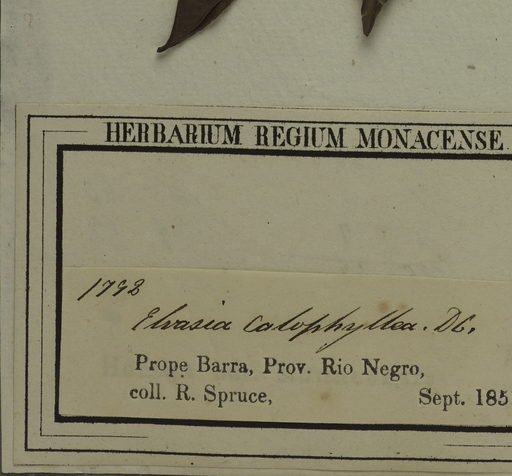 HERBARIUM REGIUM MONACENSE.
1792
Elvasia calophyllea. DC.
Prope Barra, Prov. Rio Negro,
coll. R. Spruce, Sept. 185